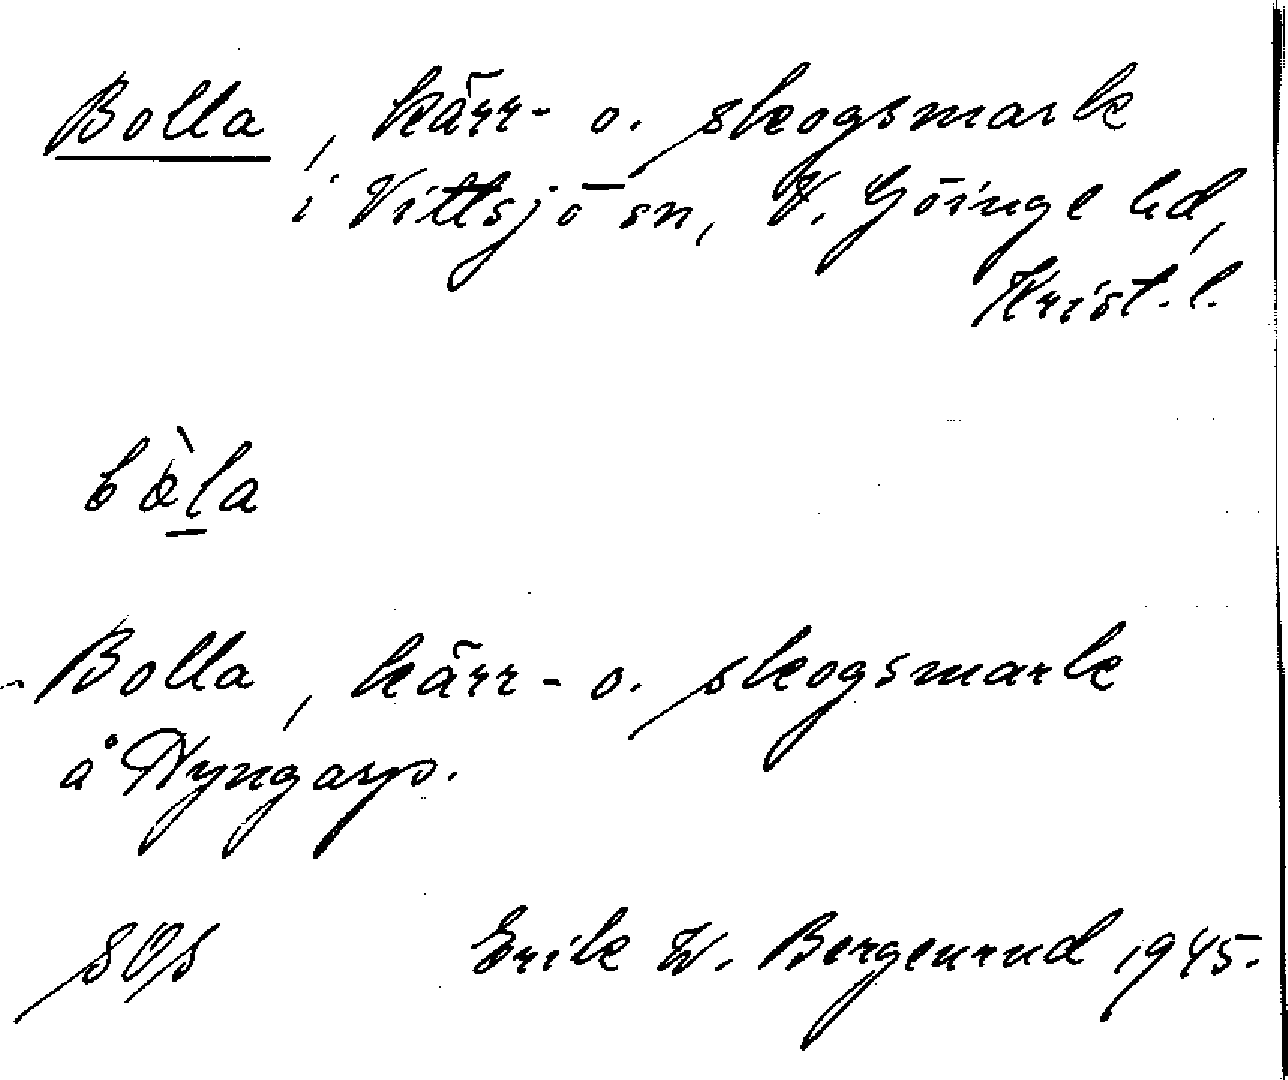 Bolla, kärr- o. skogsmark
i Vittsjö sn, V. Göinge hd,
Krist. l.
bòla
Bolla, kärr- o. skogsmark
å Nyngarp.
sOs Erik W. Bergenrud 1945.